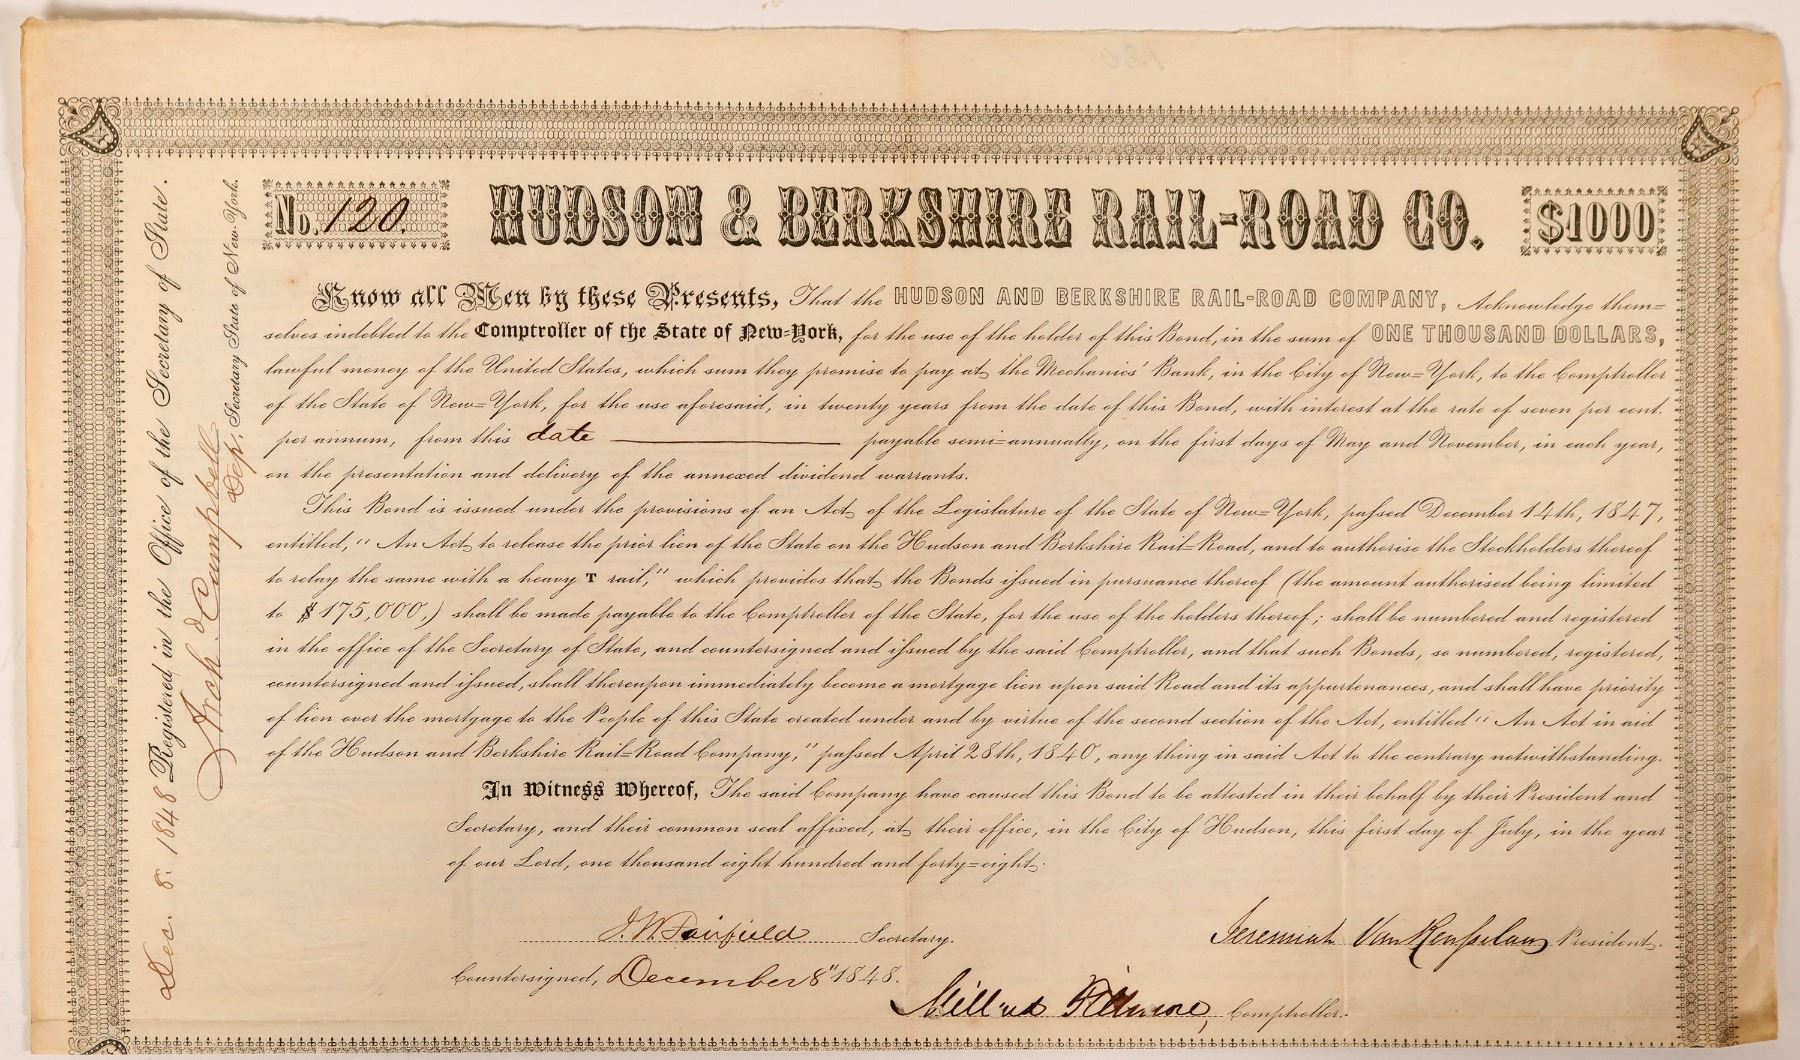 No. 120.
HUDSON & BERKSHIRE RAIL-ROAD CO.
$1000
Know all Men by these Presents, That the HUDSON AND BERKSHIRE RAIL-ROAD COMPANY, Acknowledge them=
selves indebted to the Comptroller of the State of New=York, for the use of the holder of this Bond, in the sum of ONE THOUSAND DOLLARS,
lawful money of the United States, which sum they promise to pay at the Mechanics' Bank, in the City of New=York, to the Comptroller
of the State of New=York, for the use aforesaid, in twenty years from the date of this Bond, with interest at the rate of seven per cent.
per annum, from this date payable semi=annually, on the first days of May and November, in each year,
on the presentation and delivery of the annexed dividend warrants.
This Bond is issued under the provisions of an Act of the Legislature of the State of New=York, passed December 14th, 1847,
entitled, "An Act to release the prior lien of the State on the Hudson and Berkshire Rail=Road, and to authorise the Stockholders thereof
to relay the same with a heavy T rail," which provides that the Bonds issued in pursuance thereof (the amount authorised being limited
to $175,000,) shall be made payable to the Comptroller of the State, for the use of the holders thereof; shall be numbered and registered
in the office of the Secretary of State, and countersigned and issued by the said Comptroller, and that such Bonds, so numbered, registered,
countersigned and issued, shall thereupon immediately become a mortgage lien upon said Road and its appurtenances, and shall have priority
of lien over the mortgage to the People of this State created under and by virtue of the second section of the Act, entitled "An Act in aid
of the Hudson and Berkshire Rail=Road Company," passed April 28th, 1840, any thing in said Act to the contrary notwithstanding.
In Witness Whereof, The said Company have caused this Bond to be attested in their behalf by their President and
Secretary, and their common seal affixed, at their office, in the City of Hudson, this first day of July, in the year
of our Lord, one thousand eight hundred and forty=eight.
J. W. Fairfield Secretary.
Jeremiah Van Rensselaer President.
Countersigned, December 8" 1848.
Millard Fillmore, Comptroller.
Dec. 8. 1848 Registered in the Office of the Secretary of State.
Arch d Campbell
Dep. Secretary State of New-York.